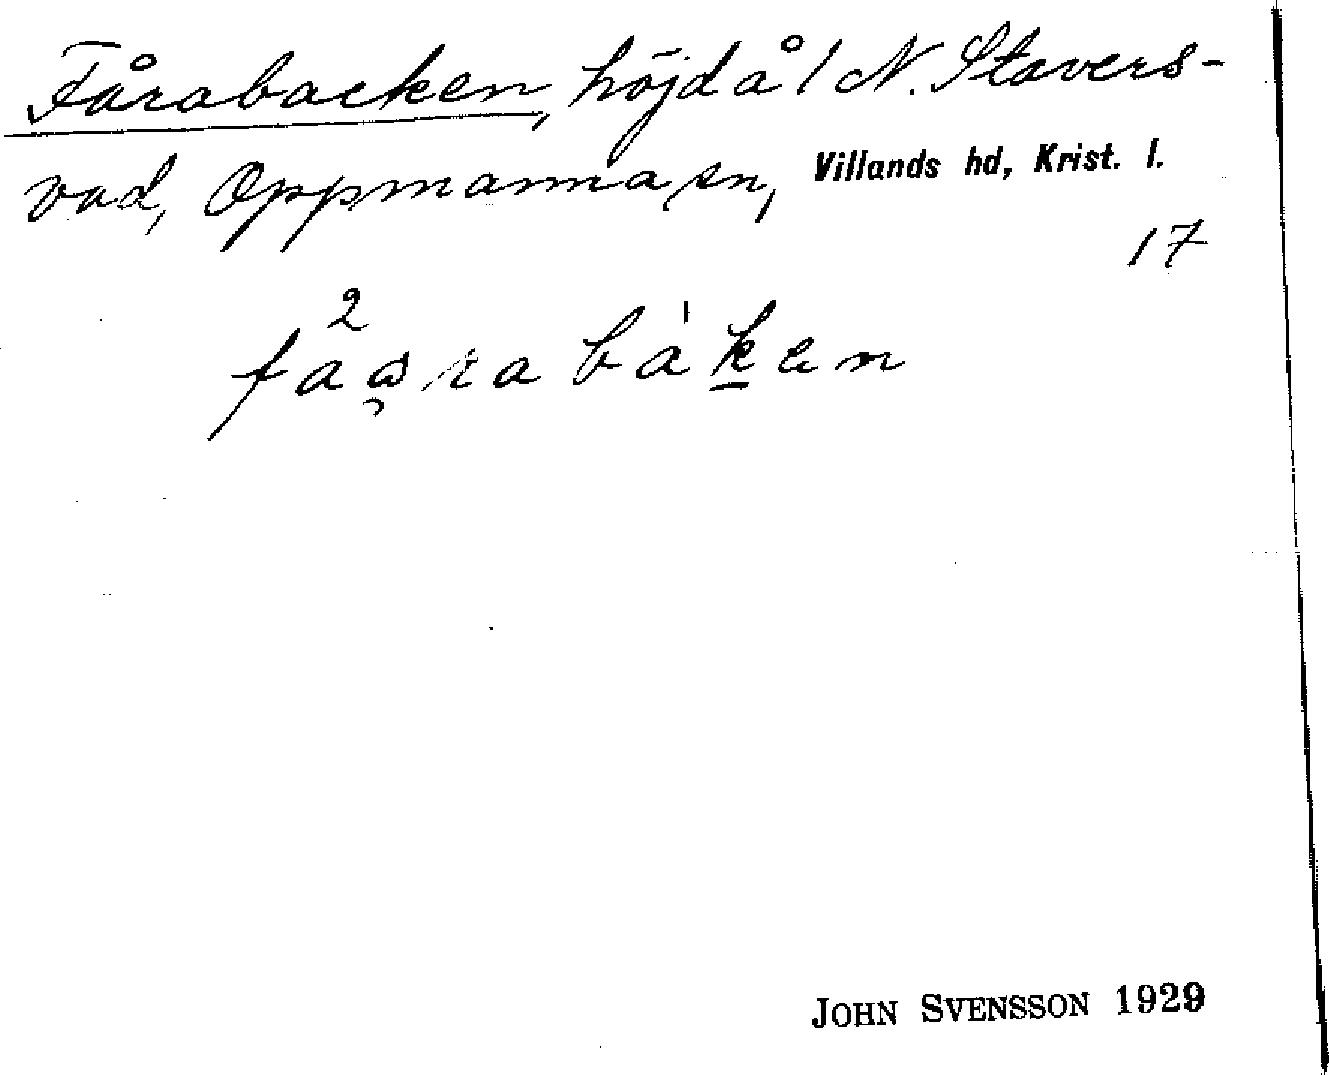 Fårabacken, höjd å 1 N. Stavers-
vad, Oppmanna sn, Villands hd, Krist. l.
17
JOHN SVENSSON 1929